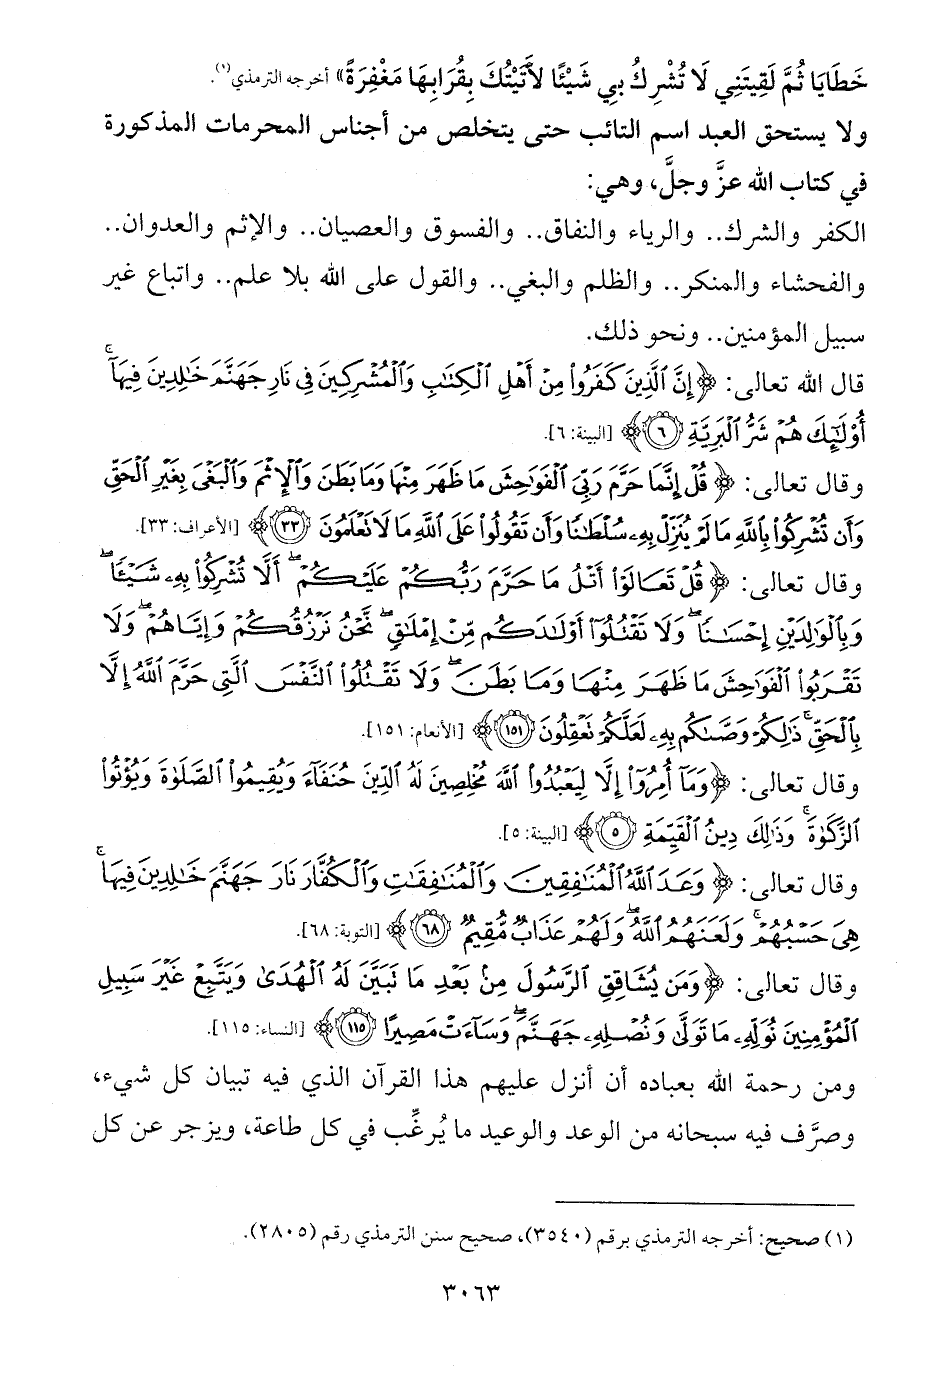 خَطَايَا ثُمَّ لَقِيتَنِي لَا تُشْرِكُ بِي شَيْئًا لأَتَيْتُكَ بِقُرَابِهَا مَغْفِرَةً» أخرجه الترمذي(١).
ولا يستحق العبد اسم التائب حتى يتخلص من أجناس المحرمات المذكورة
في كتاب الله عزَّ وجلَّ، وهي:
الكفر والشرك.. والرياء والنفاق.. والفسوق والعصيان.. والإثم والعدوان..
والفحشاء والمنكر.. والظلم والبغي.. والقول على الله بلا علم.. واتباع غير
سبيل المؤمنين.. ونحو ذلك.
قال الله تعالى: ﴿إِنَّ ٱلَّذِينَ كَفَرُوا۟ مِنْ أَهْلِ ٱلْكِتَٰبِ وَٱلْمُشْرِكِينَ فِى نَارِ جَهَنَّمَ خَٰلِدِينَ فِيهَآ ۚ
أُو۟لَٰٓئِكَ هُمْ شَرُّ ٱلْبَرِيَّةِ ٦﴾ [البينة: ٦].
وقال تعالى: ﴿قُلْ إِنَّمَا حَرَّمَ رَبِّىَ ٱلْفَوَٰحِشَ مَا ظَهَرَ مِنْهَا وَمَا بَطَنَ وَٱلْإِثْمَ وَٱلْبَغْىَ بِغَيْرِ ٱلْحَقِّ
وَأَن تُشْرِكُوا۟ بِٱللَّهِ مَا لَمْ يُنَزِّلْ بِهِۦ سُلْطَٰنًا وَأَن تَقُولُوا۟ عَلَى ٱللَّهِ مَا لَا تَعْلَمُونَ ٣٣﴾ [الأعراف: ٣٣].
وقال تعالى: ﴿قُلْ تَعَالَوْا۟ أَتْلُ مَا حَرَّمَ رَبُّكُمْ عَلَيْكُمْ ۖ أَلَّا تُشْرِكُوا۟ بِهِۦ شَيْـًٔا ۖ
وَبِٱلْوَٰلِدَيْنِ إِحْسَٰنًا ۖ وَلَا تَقْتُلُوٓا۟ أَوْلَٰدَكُم مِّنْ إِمْلَٰقٍ ۖ نَّحْنُ نَرْزُقُكُمْ وَإِيَّاهُمْ ۖ وَلَا
تَقْرَبُوا۟ ٱلْفَوَٰحِشَ مَا ظَهَرَ مِنْهَا وَمَا بَطَنَ ۖ وَلَا تَقْتُلُوا۟ ٱلنَّفْسَ ٱلَّتِى حَرَّمَ ٱللَّهُ إِلَّا
بِٱلْحَقِّ ۚ ذَٰلِكُمْ وَصَّىٰكُم بِهِۦ لَعَلَّكُمْ تَعْقِلُونَ ١٥١﴾ [الأنعام: ١٥١].
وقال تعالى: ﴿وَمَآ أُمِرُوٓا۟ إِلَّا لِيَعْبُدُوا۟ ٱللَّهَ مُخْلِصِينَ لَهُ ٱلدِّينَ حُنَفَآءَ وَيُقِيمُوا۟ ٱلصَّلَوٰةَ وَيُؤْتُوا۟
ٱلزَّكَوٰةَ ۚ وَذَٰلِكَ دِينُ ٱلْقَيِّمَةِ ٥﴾ [البينة: ٥].
وقال تعالى: ﴿وَعَدَ ٱللَّهُ ٱلْمُنَٰفِقِينَ وَٱلْمُنَٰفِقَٰتِ وَٱلْكُفَّارَ نَارَ جَهَنَّمَ خَٰلِدِينَ فِيهَا ۚ
هِىَ حَسْبُهُمْ ۚ وَلَعَنَهُمُ ٱللَّهُ ۖ وَلَهُمْ عَذَابٌ مُّقِيمٌ ٦٨﴾ [التوبة: ٦٨].
وقال تعالى: ﴿وَمَن يُشَاقِقِ ٱلرَّسُولَ مِنۢ بَعْدِ مَا تَبَيَّنَ لَهُ ٱلْهُدَىٰ وَيَتَّبِعْ غَيْرَ سَبِيلِ
ٱلْمُؤْمِنِينَ نُوَلِّهِۦ مَا تَوَلَّىٰ وَنُصْلِهِۦ جَهَنَّمَ ۖ وَسَآءَتْ مَصِيرًا ١١٥﴾ [النساء: ١١٥].
ومن رحمة الله بعباده أن أنزل عليهم هذا القرآن الذي فيه تبيان كل شيء،
وصرَّف فيه سبحانه من الوعد والوعيد ما يُرغِّب في كل طاعة، ويزجر عن كل
(١) صحيح: أخرجه الترمذي برقم (٣٥٤٠)، صحيح سنن الترمذي رقم (٢٨٠٥).
٣٠٦٣